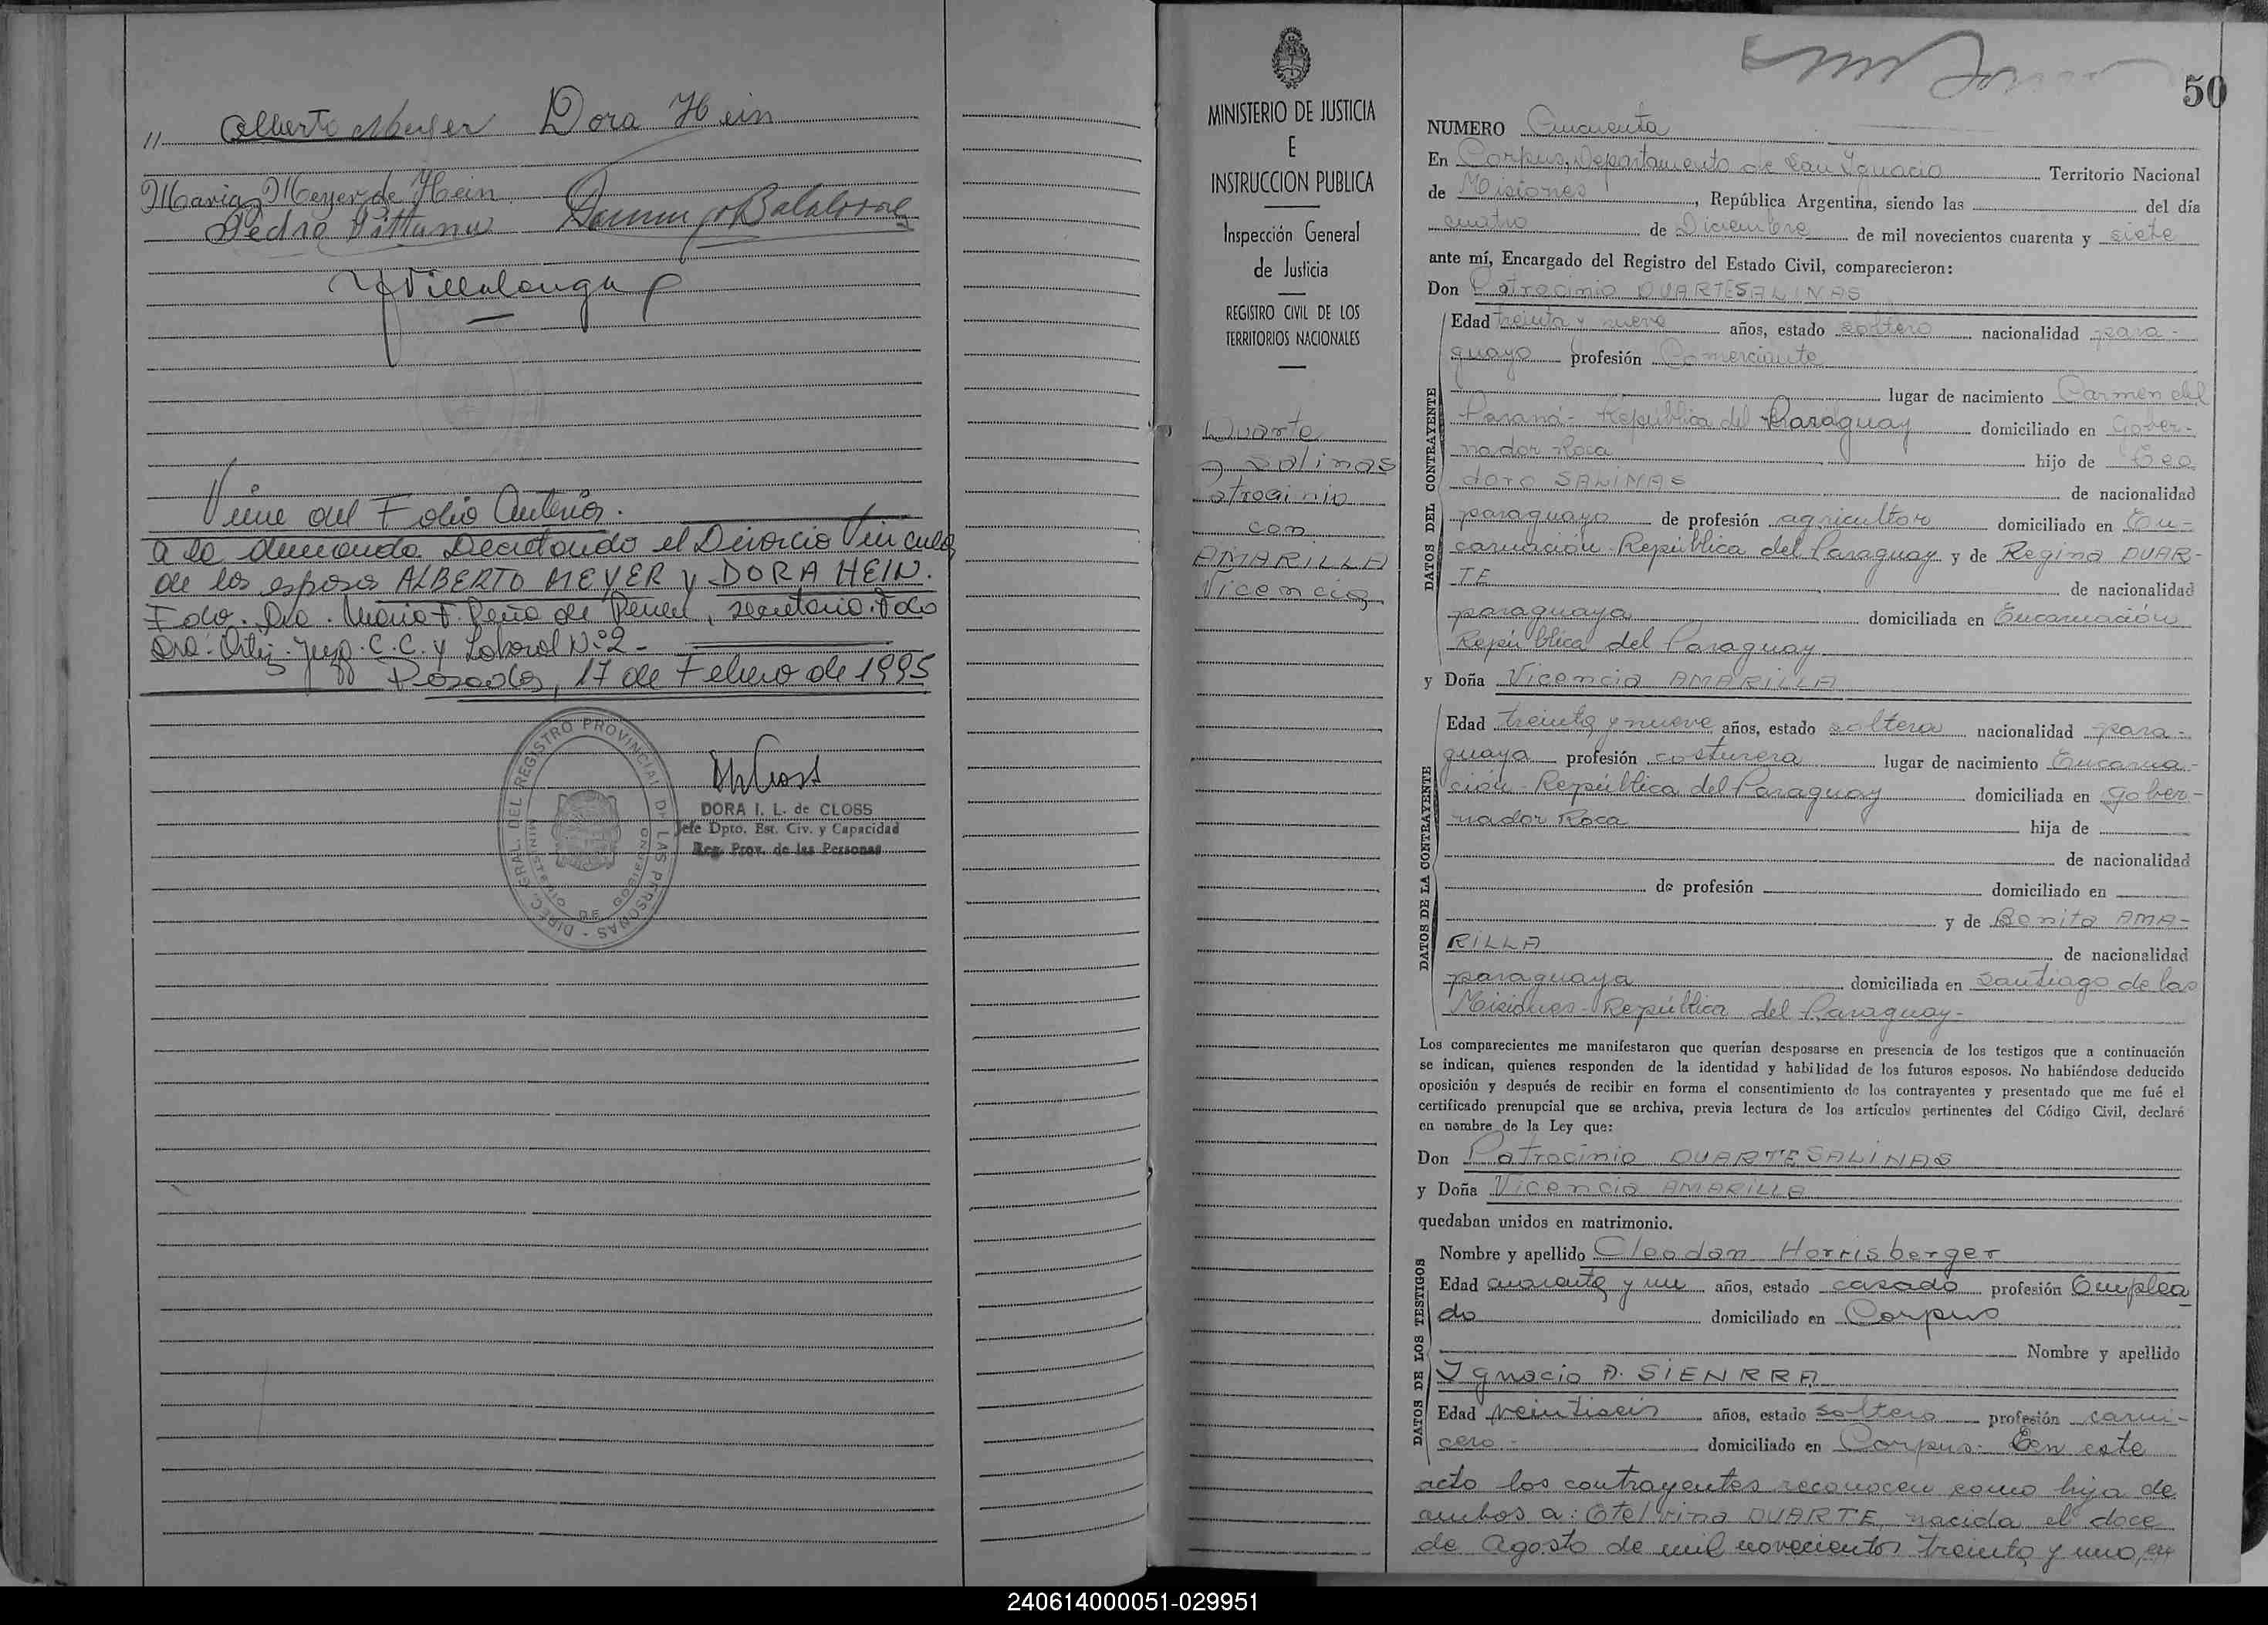 11 Alberto Meyer Dora Hein
Maria Meyer de Hein
Pedro
Villalonga
Viene del Folio Anterior.
a la demanda Decretando el Divorcio Vincular
de los esposos ALBERTO MEYER y DORA HEIN.
Fdo. Dra. Maria T. de , secretaria. Fdo
Dra. Ortiz. Juzg. C. C. y Laboral Nº 2-
Posadas, 17 de Febrero de 1995
DIREC. GRAL. DEL REGISTRO PROVINCIAL DE LAS PERSONAS
MINISTERIO DE GOBIERNO
DORA I. L. de CLOSS
Jefe Dpto. Est. Civ. y Capacidad
Reg. Prov. de las Personas
MINISTERIO DE JUSTICIA
E
INSTRUCCION PUBLICA
Inspección General
de Justicia
REGISTRO CIVIL DE LOS
TERRITORIOS NACIONALES
Duarte
Salinas
Patrocinio
con
AMARILLA
Vicencia
50
NUMERO Cincuenta
En Corpus, Departamento de San Ignacio Territorio Nacional
de Misiones, República Argentina, siendo las del día
cuatro de Diciembre de mil novecientos cuarenta y siete
ante mí, Encargado del Registro del Estado Civil, comparecieron:
Don Patrocinio DUARTE SALINAS
DATOS DEL CONTRAYENTE
Edad treinta y nueve años, estado soltero nacionalidad para-
guayo profesión Comerciante
lugar de nacimiento Carmen del
Paraná - República del Paraguay domiciliado en Gober-
nador Roca hijo de Teo
doro SALINAS de nacionalidad
paraguayo de profesión agricultor domiciliado en En-
carnación - República del Paraguay y de Regina DUAR-
TE de nacionalidad
paraguaya domiciliada en Encarnación
República del Paraguay
y Doña Vicencia AMARILLA
DATOS DE LA CONTRAYENTE
Edad treinta y nueve años, estado soltera nacionalidad para-
guaya profesión costurera lugar de nacimiento Encarna-
ción - República del Paraguay domiciliada en Gober-
nador Roca hija de
de nacionalidad
de profesión domiciliado en
y de Benita AMA-
RILLA de nacionalidad
paraguaya domiciliada en Santiago de las
Misiones - República del Paraguay -
Los comparecientes me manifestaron que querían desposarse en presencia de los testigos que a continuación
se indican, quienes responden de la identidad y habilidad de los futuros esposos. No habiéndose deducido
oposición y después de recibir en forma el consentimiento de los contrayentes y presentado que me fué el
certificado prenupcial que se archiva, previa lectura de los artículos pertinentes del Código Civil, declaré
en nombre de la Ley que:
Don Patrocinio DUARTE SALINAS
y Doña Vicencia AMARILLA
quedaban unidos en matrimonio.
DATOS DE LOS TESTIGOS
Nombre y apellido Cleodan Herrisberger
Edad cuarenta y un años, estado casado profesión Emplea
do domiciliado en Corpus
Nombre y apellido
Ignacio A. SIENRRA
Edad veintiseis años, estado soltero profesión carni-
cero - domiciliado en Corpus. En este
acto los contrayentes reconocen como hija de
ambos a: Otelvina DUARTE nacida el doce
de Agosto de mil novecientos treinta y uno, en
240614000051-029951